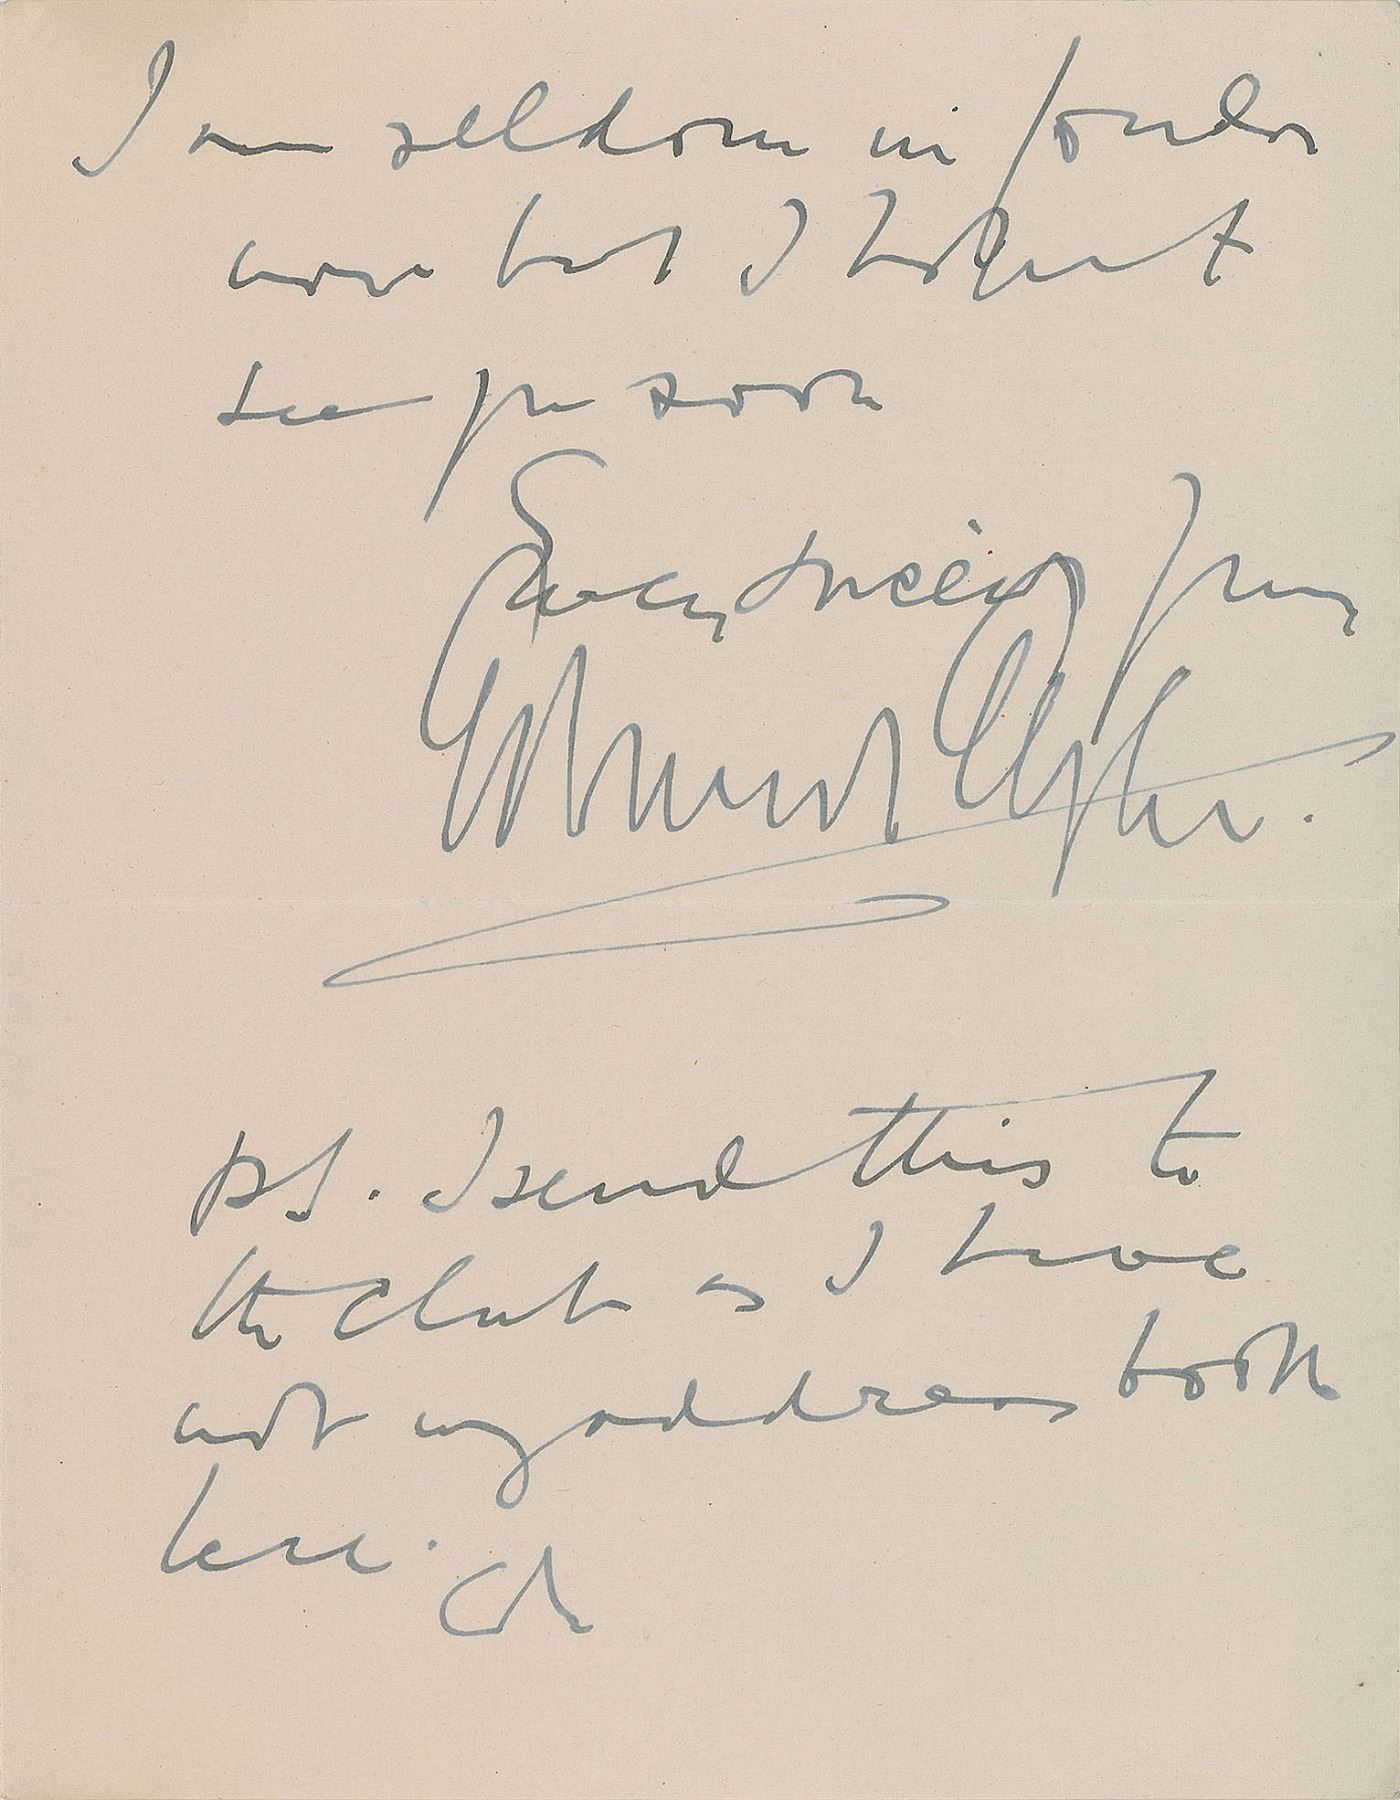 I am seldom in London
now but I hope to
see you soon
Every sincerely yours
Edward Elgar.
P.S. I send this to
the club as I have
not my address book
here.